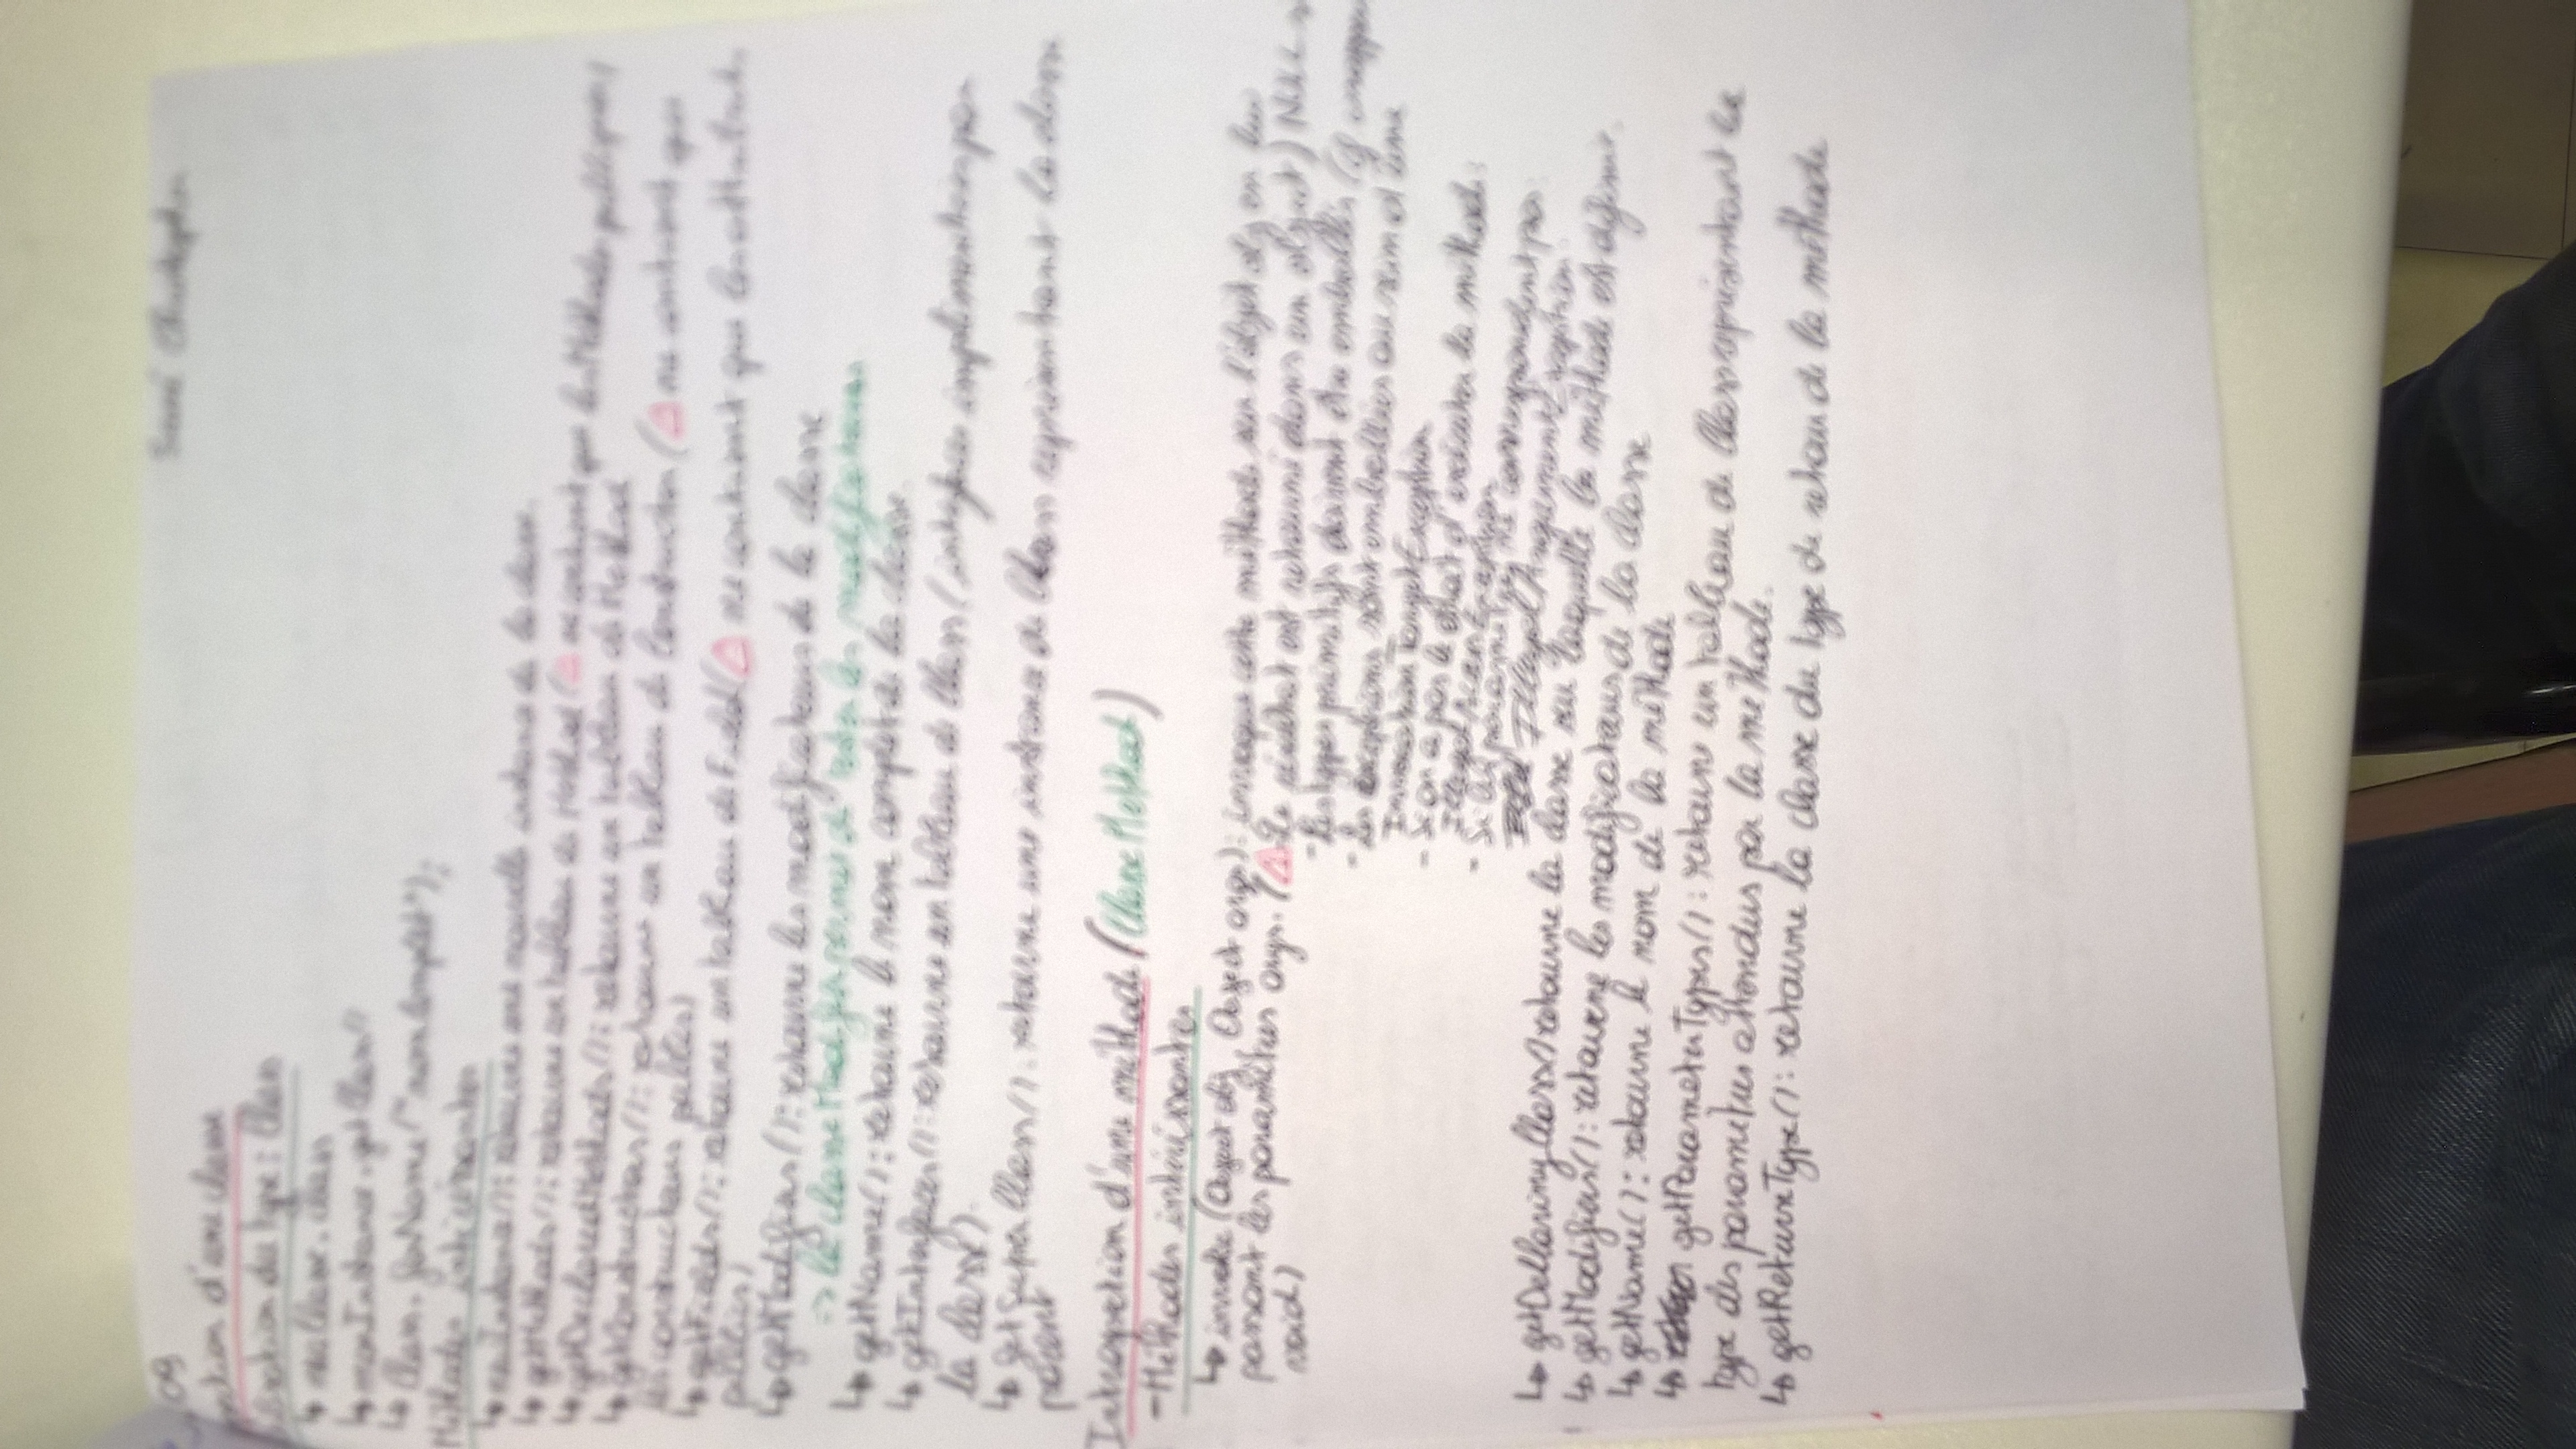 09
d'une classe
du type : Class
↳ maClasse.class
↳ monInstance.getClass()
↳ Class.forName("nomComplet");
Méthodes intéressantes
↳ newInstance() : retourne une nouvelle instance de la classe.
↳ getMethods() : retourne un tableau de Method (⚠ ne contient que les Méthodes publiques)
↳ getDeclaredMethods() : retourne un tableau de Method
↳ getConstructors() : retourne un tableau de Constructor (⚠ ne contient que
les constructeurs publics)
↳ getFields() : retourne un tableau de Field (⚠ ne contient que les attributs
publics)
↳ getModifiers() : retourne les modificateurs de la classe
=> la classe Modifier permet de tester les modificateurs
↳ getName() : retourne le nom complet de la classe.
↳ getInterfaces() : retourne un tableau de Class (interfaces implémentées par
la classe).
↳ getSuperClass() : retourne une instance de Class représentant la classe
parent
Introspection d'une méthode (Classe Method)
- Méthodes intéressantes
↳ invoke (Object obj, Object args) : invoque cette méthode sur l'objet obj en lui
passant les paramètres args. (⚠ - Le résultat est retourné dans un object)
void)
- Les types primitifs doivent être emballés (cf
- Les exceptions sont emballées au sein d'une
InvocationTargetException
- Si on a pas le droit d'exécuter la méthode :
IllegalAccessException
- Si les paramètres ne correspondent pas
IllegalArgumentException
↳ getDeclaringClass() retourne la classe sur laquelle la méthode est définie.
↳ getModifiers() : retourne les modificateurs de la classe
↳ getName() : retourne le nom de la méthode
↳ getParameterTypes() : retourne un tableau de Class représentant le
type des paramètres attendus par la méthode.
↳ getReturnType() : retourne la classe du type de retour de la méthode